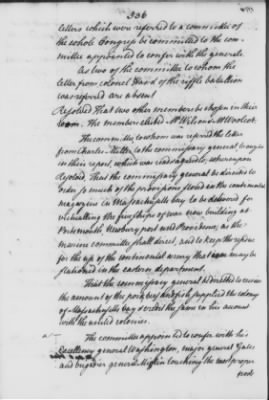 336
letters which were referred to a committee of
the whole Congress be committed to the com-
mittee appointed to confer with the generals.
As two of the committee to whom the
letter from colonel Hand of the riffle battalion
was referred are absent
Resolved That two other members be chosen in their
room. The members elected Mr Wilson & Mr Wolcot.
The committee to whom was referred the letter
from Charles Miller to the commissary general brought
in their report, which was read & agreed to, whereupon
Resolved That the commissary general be directed to
order so much of the provisions stored in the continental
magazines in Massachusetts bay to be delivered for
victualling the five ships of war now building at
Portsmouth, Newbury port and Providence, as the
marine committee shall direct, and to keep the residue
for the use of the continental army that may be
stationed in the eastern department.
That the commissary general be directed to receive
the amount of the pork, beef and fish supplied the colony
of Massachusetts bay & credit the same in his account
with the united colonies.
The committee appointed to confer with his
Excellency general Washington, major general Gates
and brigadier general Mifflin touching the most proper